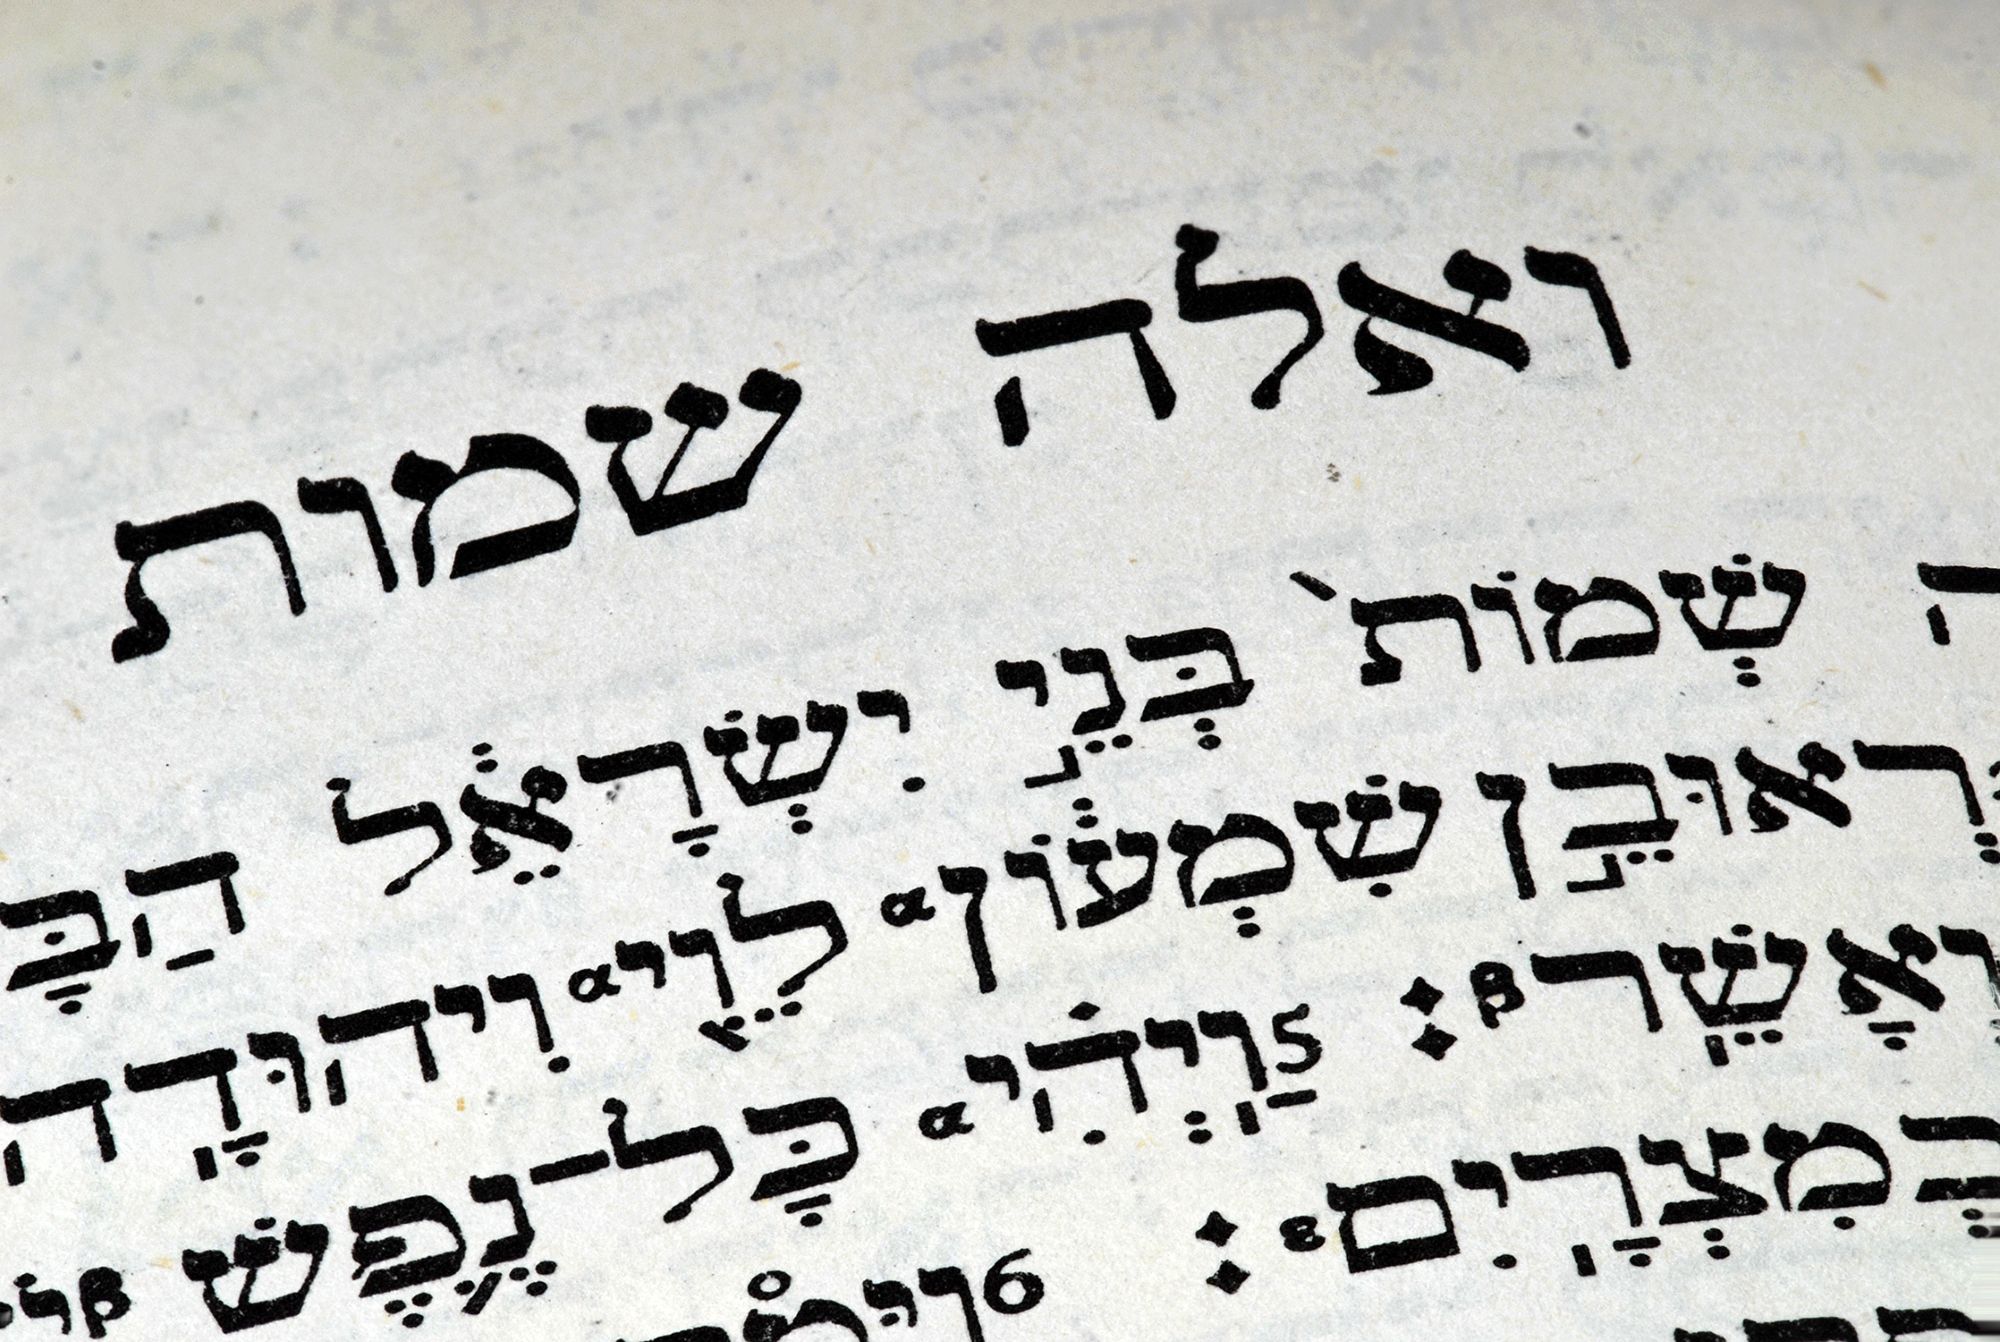 ואלה שמות
שְׁמוֹת֙ בְּנֵ֣י יִשְׂרָאֵ֔ל
רְאוּבֵ֣ן שִׁמְע֔וֹןα לֵוִ֖יα וִיהוּדָֽה
וְאָשֵֽׁרβ׃ 5וַֽיְהִ֗יα כָּל־נֶ֛פֶשׁ
בְּמִצְרָֽיִםε׃ 6